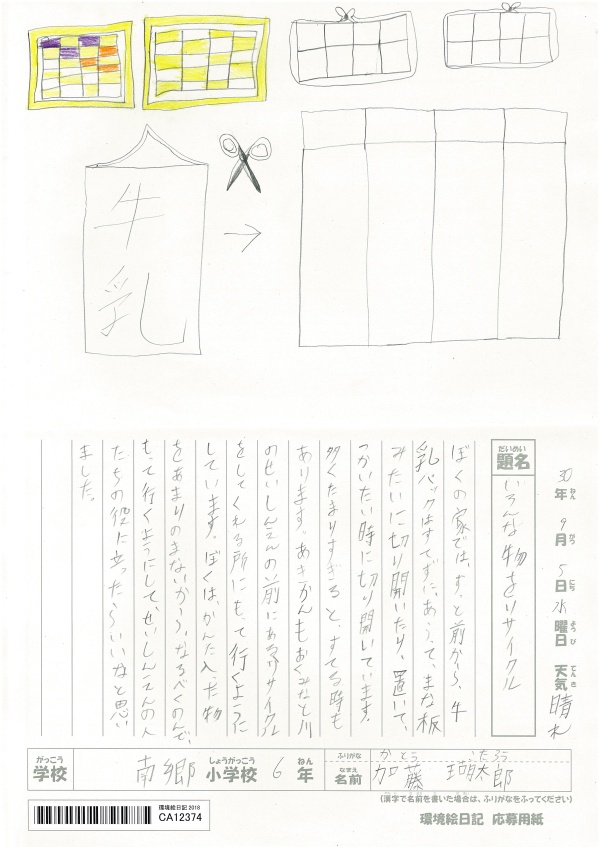 牛乳
30年 9月 5日 水曜日 天気 晴れ
ねん がつ にち ようび てんき
だいめい
題名
いろんな物をリサイクル
ぼくの家では、ずっと前から、牛
乳パックはすてずに、あらって、まな板
みたいに切り開いたり、置いて、
つかいたい時に切り開いています。
多くたまりすぎると、すてる時も
あります。あきかんもおくみなと川
のせいしんえんの前にあるリサイクル
をしてくれる所にもって行くように
しています。ぼくは、かんに入った物
をあまりのまないから、なるべくのんで、
もって行くようにして、せいしんえんの人
たちの役に立ったらいいなと思い
ました。
がっこう
学校
南郷 小学校 6年
しょうがっこう ねん
ふりがな かとう こたろう
なまえ
名前 加藤 瑚太郎
(漢字で名前を書いた場合は、ふりがなをふってください)
環境絵日記 応募用紙
環境絵日記 2018
CA12374